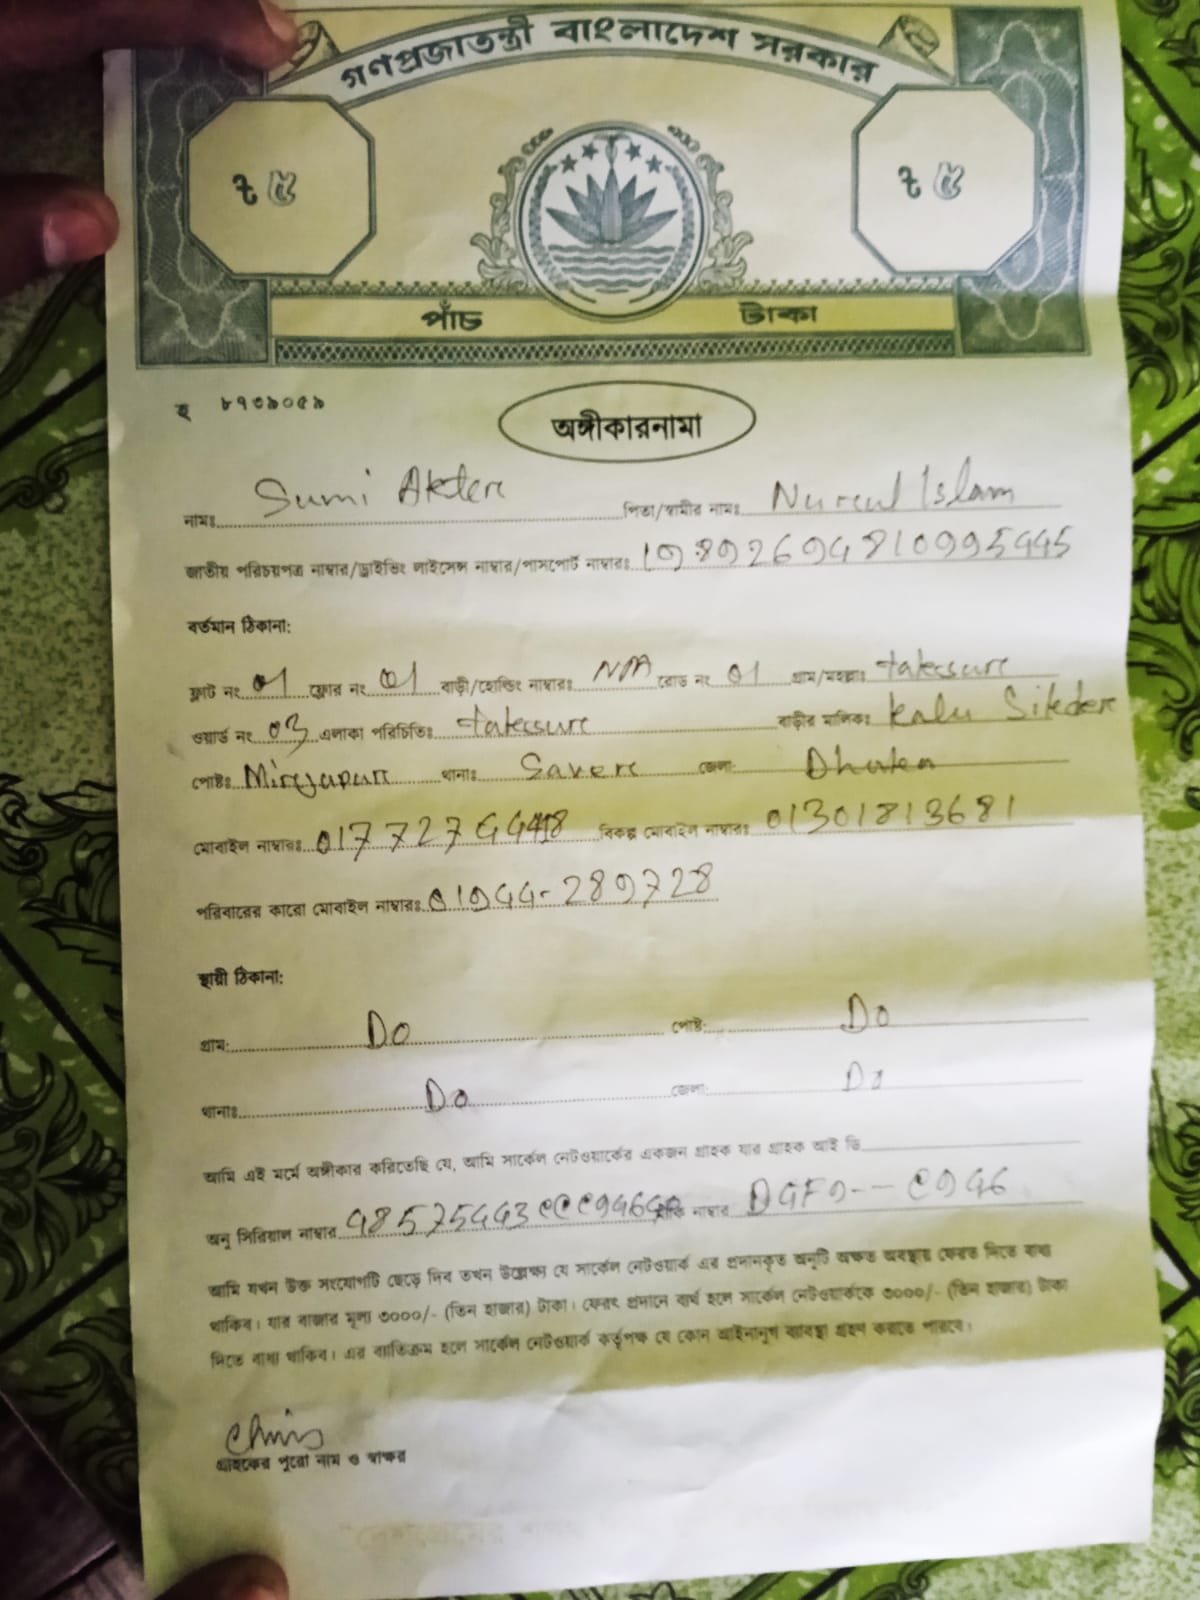 গণপ্রজাতন্ত্রী বাংলাদেশ সরকার
৳ ৫ ৳ ৫
পাঁচ টাকা
হ ৮৭৩৯০৫৯
অঙ্গীকারনামা
নামঃ Sumi Akter পিতা/স্বামীর নামঃ Nurul Islam
জাতীয় পরিচয়পত্র নাম্বার/ড্রাইভিং লাইসেন্স নাম্বার/পাসপোর্ট নাম্বারঃ
বর্তমান ঠিকানা:
ফ্লাট নং 01 ফ্লোর নং 01 বাড়ী/হোল্ডিং নাম্বারঃ N/A রোড নং 01 গ্রাম/মহল্লাঃ
ওয়ার্ড নং 03 এলাকা পরিচিতিঃ বাড়ীর মালিকঃ Kalu Sikder
পোষ্টঃ Mirzapur থানাঃ Saver জেলা: Dhaka
মোবাইল নাম্বারঃ বিকল্প মোবাইল নাম্বারঃ 01301813681
পরিবারের কারো মোবাইল নাম্বারঃ
স্থায়ী ঠিকানা:
গ্রাম: Do পোষ্ট: Do
থানাঃ Do জেলা: Do
আমি এই মর্মে অঙ্গীকার করিতেছি যে, আমি সার্কেল নেটওয়ার্কের একজন গ্রাহক যার গ্রাহক আই ডি
অনু সিরিয়াল নাম্বার নাম্বার
আমি যখন উক্ত সংযোগটি ছেড়ে দিব তখন উল্লেক্ষ্য যে সার্কেল নেটওয়ার্ক এর প্রদানকৃত অনুটি অক্ষত অবস্থায় ফেরত দিতে বাধ্য
থাকিব। যার বাজার মূল্য ৩০০০/- (তিন হাজার) টাকা। ফেরৎ প্রদানে ব্যর্থ হলে সার্কেল নেটওয়ার্ককে ৩০০০/- (তিন হাজার) টাকা
দিতে বাধ্য থাকিব। এর ব্যতিক্রম হলে সার্কেল নেটওয়ার্ক কর্তৃপক্ষ যে কোন আইনানুগ ব্যবস্থা গ্রহণ করতে পারবে।
গ্রাহকের পুরো নাম ও স্বাক্ষর